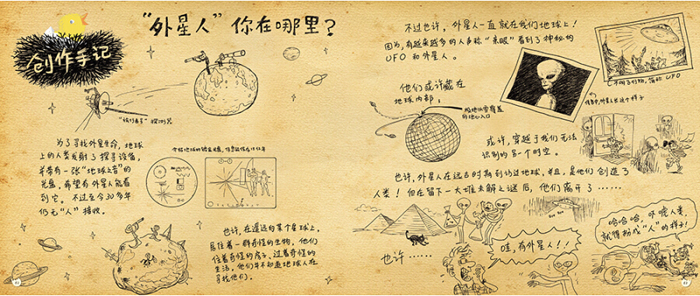 创作手记
“外星人”你在哪里？
“旅行者号”探测器
为了寻找外星生命，地球
上的人类发射了探寻设备，
并带有一张“地球之音”的
光盘，希望有外星人能看
到它。不过至今30多年
仍无“人”接收。
也许，在遥远的某个星球上，
居住着一群奇怪的生物，他们
住着奇怪的房子，过着奇怪的
生活，他们并不知道地球人在
寻找他们。
不过也许，外星人一直就在我们地球上！
因为，有越来越多的人声称“亲眼”看到了神秘的
UFO和外星人。
UFO
他们或许藏在
地球内部，
或许，穿越于我们无法
识别的另一个时空。
也许，外星人在远古时期到过达地球，并且，是他们创造了
人类！但在留下一大堆未解之谜后，他们离开了……
也许……
哇，有外星人！！
哈哈哈，吓唬人类，
就得扮成“人”的样子！